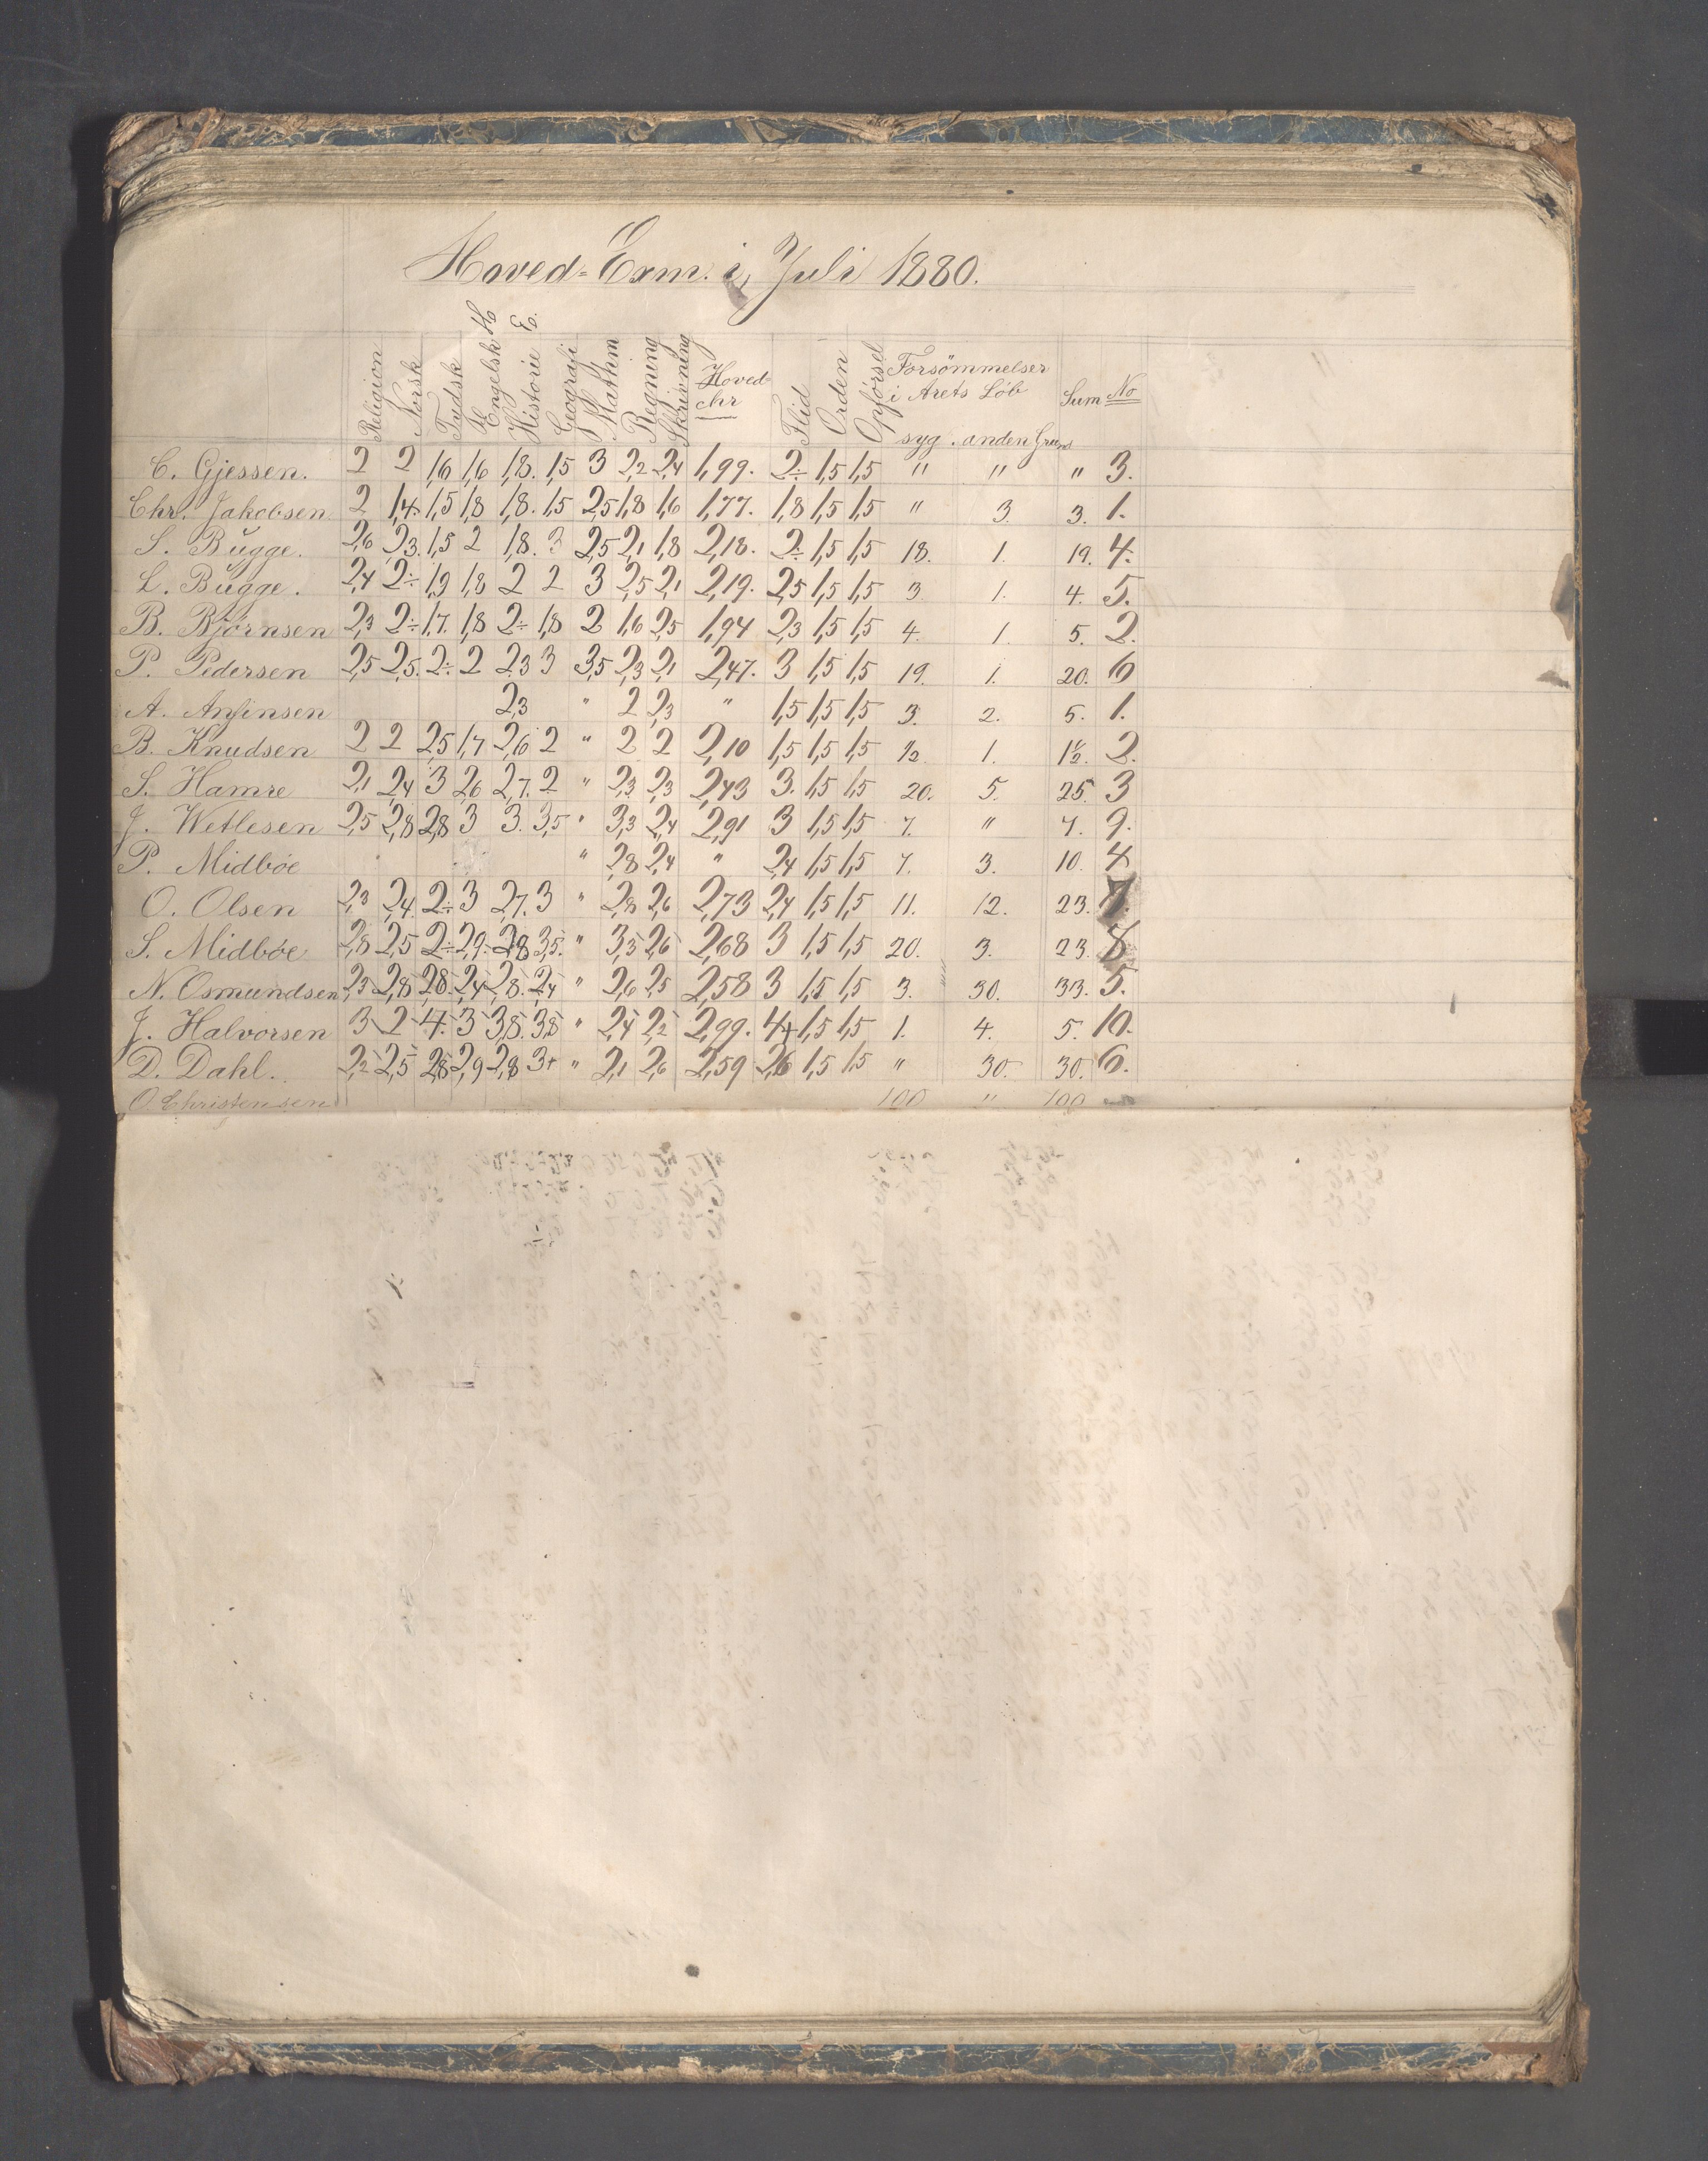 Hoved-Exm. i Juli 1880.
Religion Norsk Tydsk Engelsk Historie Geografi Mathm Regning Skrivning Hoved-chr Flid Orden Opførsel Forsömmelser i Arets Löb syg. anden Grund Sum No
C. Gjessen. 2 2 1,6 1,6 1,8. 1,5 3 2,2 2,4 1,99. 2÷ 1,5 1,5 " " " 3.
Chr. Jakobsen 2 1,4. 1,5 1,8 1,8. 1,5 2,5 1,8 1,6 1,77. 1,8 1,5 1,5 " 3. 3. 1.
S. Bugge. 2,6 2,3. 1,5 2 1,8. 3 2,5 2,1 1,8 2,18. 2÷ 1,5 1,5 18. 1. 19. 4.
L. Bugge. 2,4 2÷ 1,9 1,8 2 2 3 2,5 2,1 2,19. 2,5 1,5 1,5 3. 1. 4. 5.
B. Bjørnsen 2,3 2÷ 1,7. 1,8 2÷ 1,8 2 1,6 2,5 1,94 2,3 1,5 1,5 4. 1. 5. 2.
P. Pedersen 2,5 2,5. 2÷ 2 2,3 3 3,5 2,3 2,1 2,47. 3 1,5 1,5 19. 1. 20. 6
A. Anfinsen 2,3 " 2 2,3 " 1,5 1,5 1,5 3. 2. 5. 1.
B. Knudsen 2 2 2,5 1,7 2,6 2 " 2 2 2,10 1,5 1,5 1,5 1/2 1. 1 1/2. 2.
S. Hamre 2,1 2,4 3 2,6 2,7. 2 " 2,3 2,3 2,43 3. 1,5 1,5 20. 5. 25. 3
J. Wetlesen 2,5 2,8 2,8 3 3. 3,5 " 3,3 2,4 2,91 3 1,5 1,5 7. " 7. 9.
P. Midbøe " 2,8 2,4 " 2,4 1,5 1,5 7. 3. 10. 4
O. Olsen 2,3 2,4. 2÷ 3 2,7. 3 " 2,8 2,6 2,73 2,4 1,5 1,5 11. 12. 23. 7.
S. Midbøe 2,8 2,5 2÷ 2,9. 2,8 3,5. " 3,3 2,6 2,68 3 1,5 1,5 20. 3. 23. 8.
N. Osmundsen 2,3 2,8 2,8. 2,4 2,8. 2,4 " 2,6 2,5 2,58 3 1,5 1,5 3. 30. 33. 5.
J. Halvorsen 3 2 4. 3 3,8. 3,8 " 2,4 2,2 2,99. 4+ 1,5 1,5 1. 4. 5. 10.
D. Dahl. 2,2 2,5 2,8 2,9 2,8 3+ " 2,1 2,6 2,59 2,6 1,5 1,5 " 30. 30. 6.
O Christensen 100 " 100